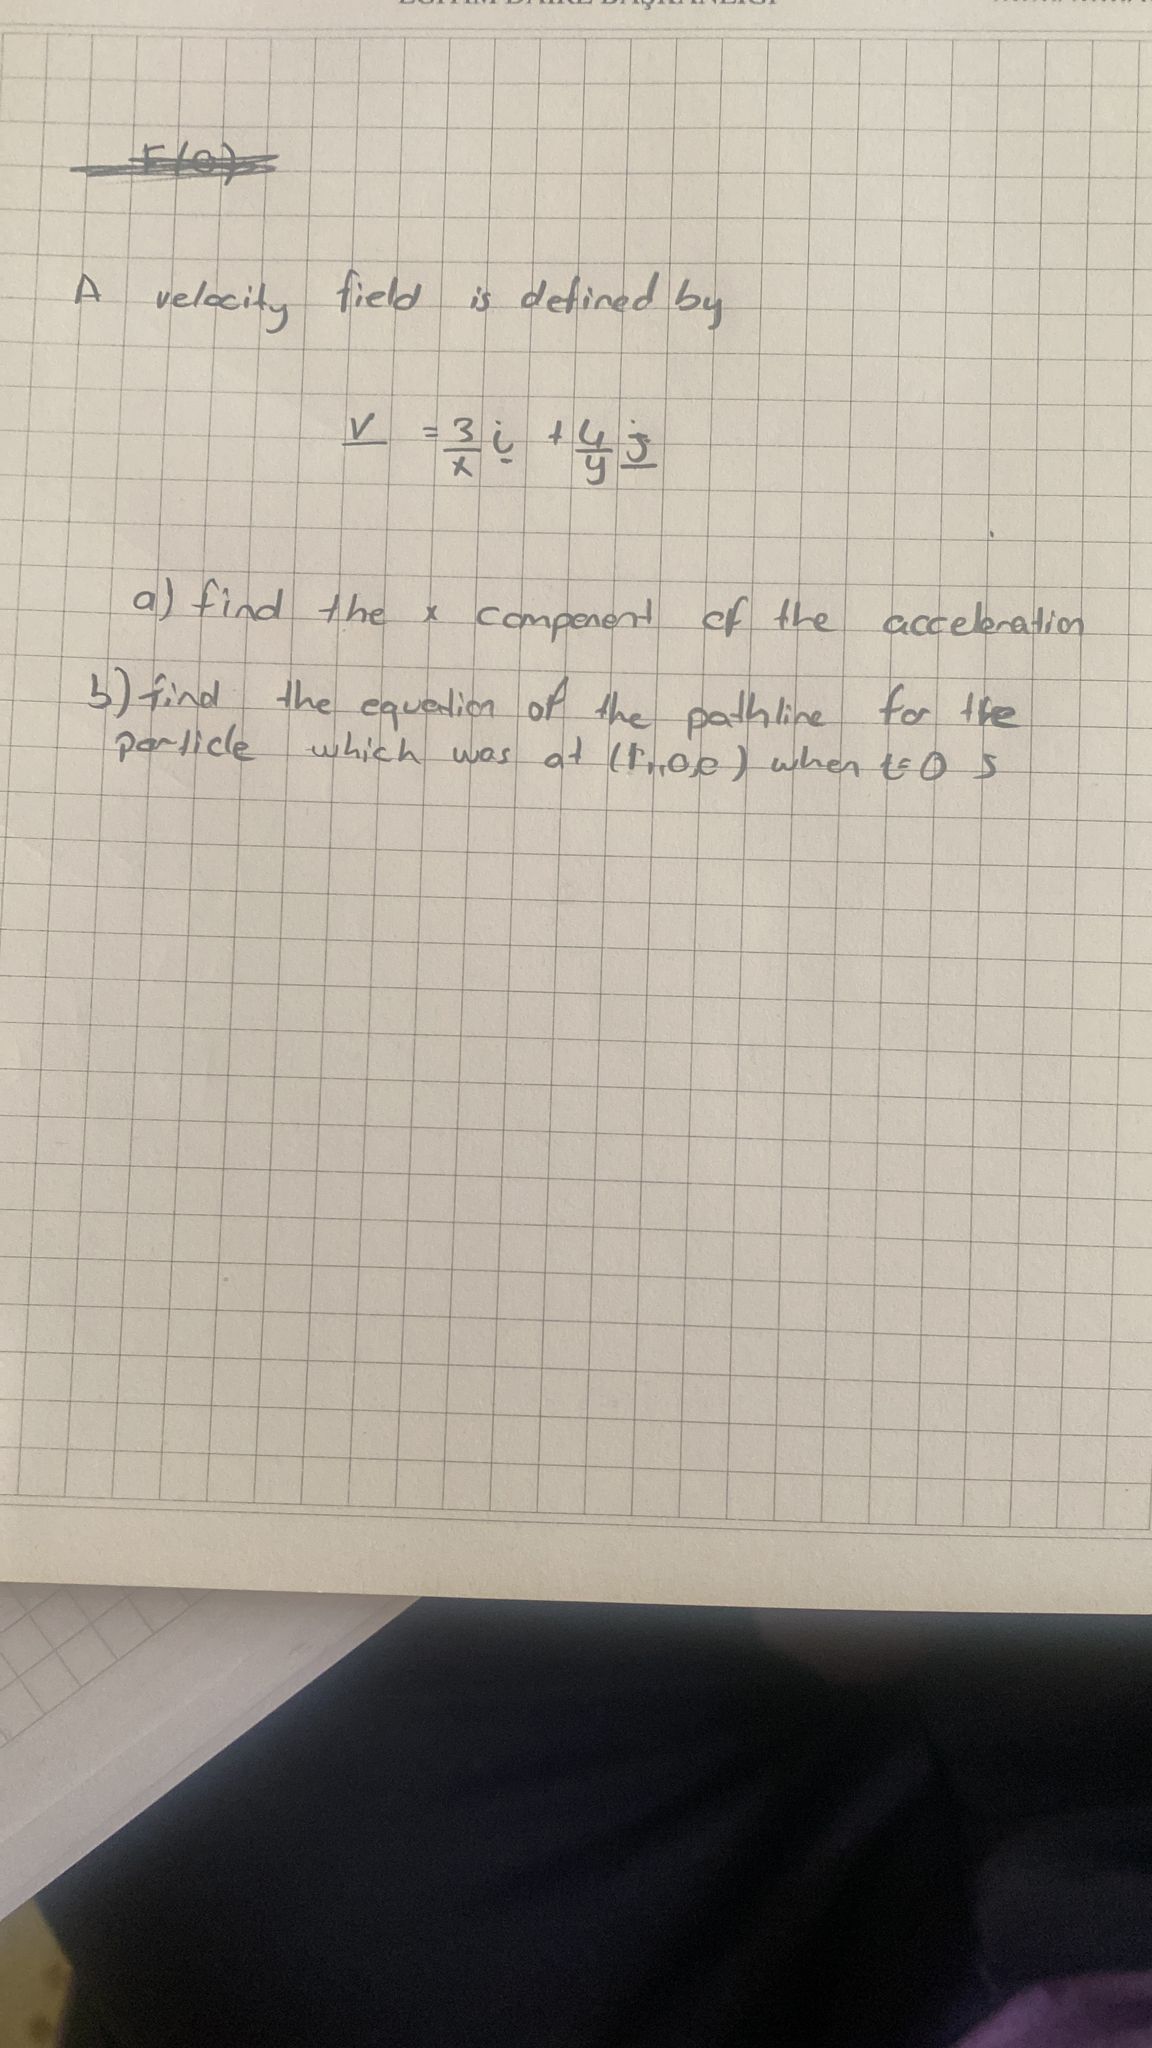 EĞİTİM DAİRE BAŞKANLIĞI
F(0)
A velocity field is defined by
V = 3/x i + 4/y j
a) find the x component of the acceleration
b) find the equation of the pathline for the
particle which was at when t=0 s